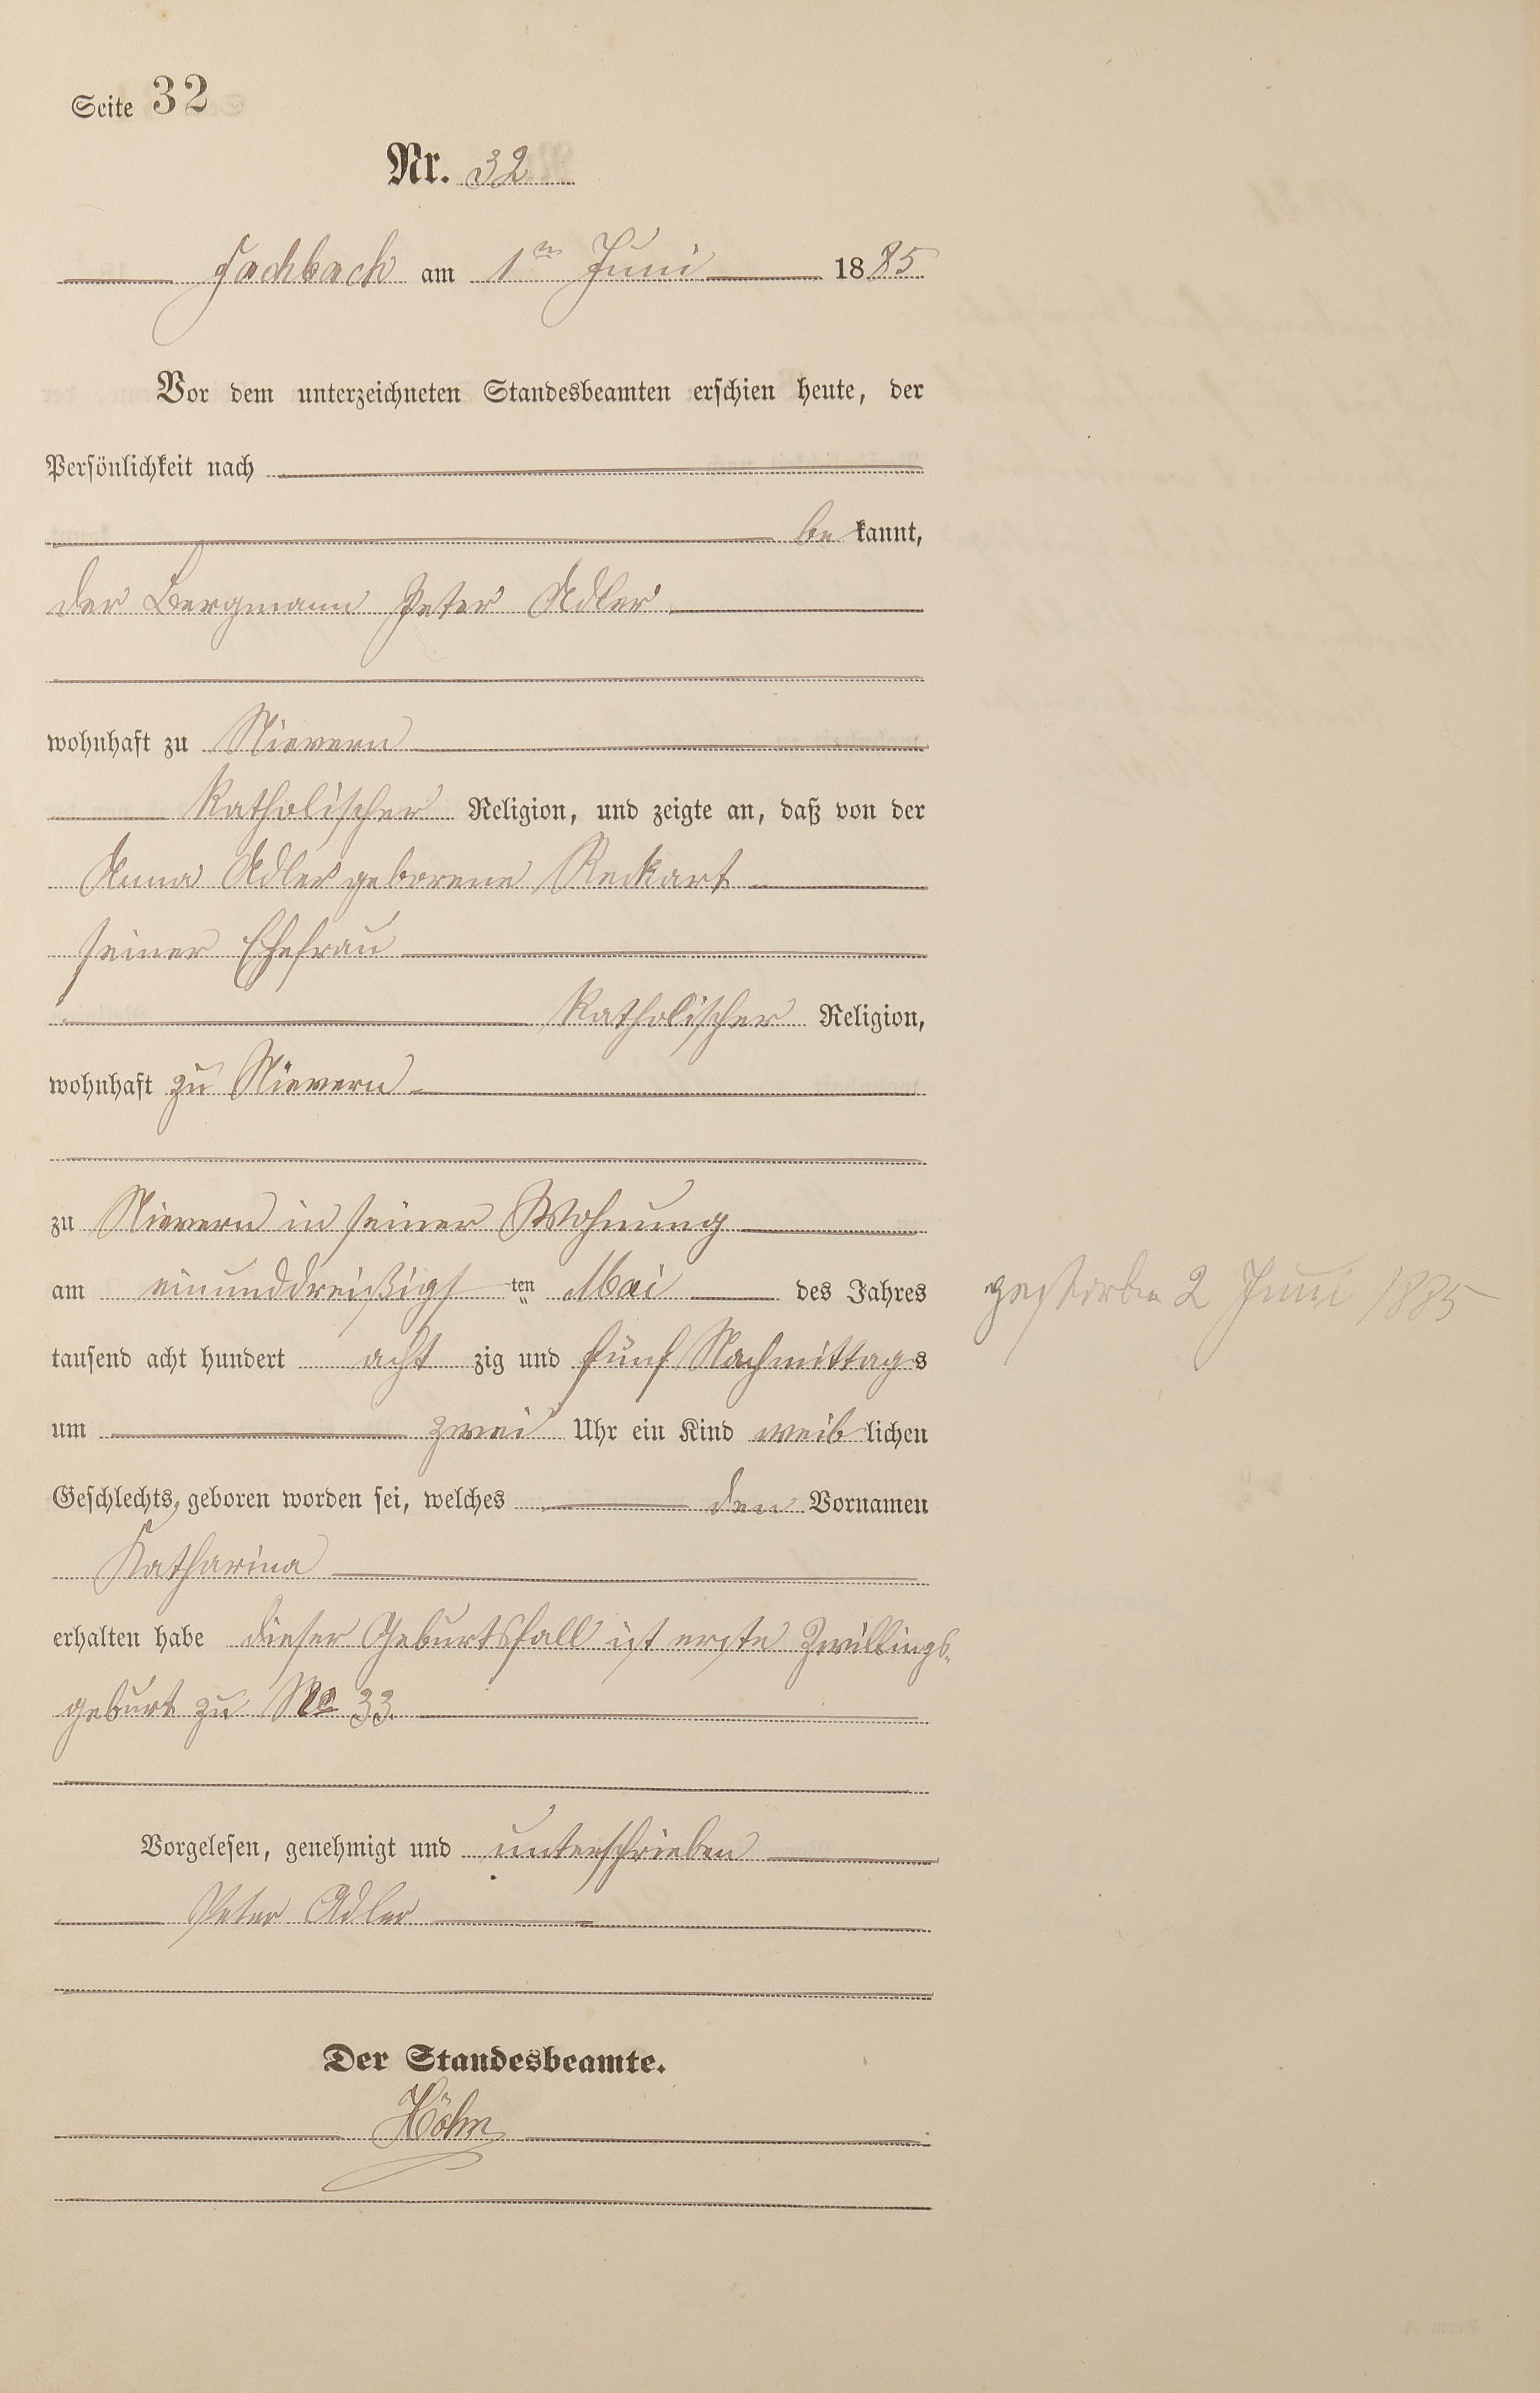 Seite 32
Nr. 32
Fachbach am 1ten Juni 1885
Vor dem unterzeichneten Standesbeamten erschien heute, der
Persönlichkeit nach
be kannt,
der Bergmann Peter Adler
wohnhaft zu Nievern
katholischer Religion, und zeigte an, daß von der
Anna Adler geborene Reckart
seiner Ehefrau
katholischer Religion,
wohnhaft zu Nievern
zu Nievern in seiner Wohnung
am einunddreißigsten Mai des Jahres
tausend acht hundert acht zig und fünf Nachmittags
um zwei Uhr ein Kind weiblichen
Geschlechts, geboren worden sei, welches den Vornamen
Katharina
erhalten habe dieser Geburtsfall ist erste Zwillings-
geburt zu No 33.
Vorgelesen, genehmigt und unterschrieben
Peter Adler
Der Standesbeamte.
Höhn
gestorben 2 Juni 1885